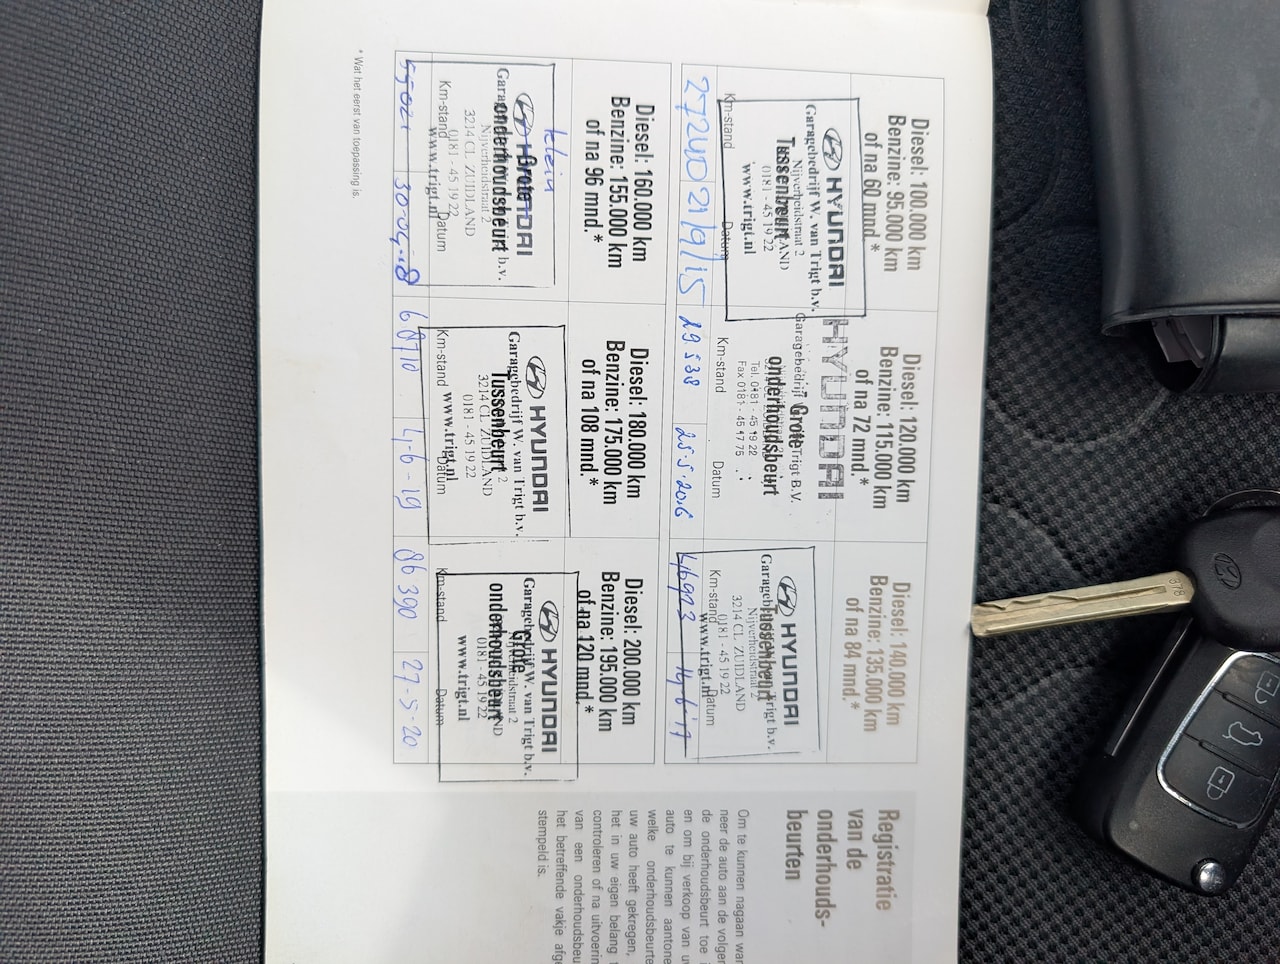 Registratie
van de
onderhouds-
beurten
Om te kunnen nagaan
neer de auto aan de
de onderhoudsbeurt toe
en om bij verkoop van
auto te kunnen
welke
uw auto heeft gekregen,
het in uw eigen belang
controleren of na
van een
het betreffende vakje
stempeld is.
Diesel: 100.000 km
Benzine: 95.000 km
of na 60 mnd.*
HYUNDAI
Garagebedrijf W. van Trigt b.v.
Nijverheidstraat 2
Tussenbeurt
0181 - 45 19 22
www.trigt.nl
Km-stand
Datum
27240 21/9/15
Diesel: 120.000 km
Benzine: 115.000 km
of na 72 mnd.*
HYUNDAI
Garagebedrijf W. van Trigt B.V.
Grote
onderhoudsbeurt
Tel. 0181 - 45 19 22
Fax 0181 - 45 17 75
Km-stand
Datum
29538 25.5.2016
Diesel: 140.000 km
Benzine: 135.000 km
of na 84 mnd.*
HYUNDAI
Garagebedrijf W. van Trigt b.v.
Tussenbeurt
Nijverheidstraat 2
3214 CL ZUIDLAND
0181 - 45 19 22
www.trigt.nl
Km-stand
Datum
46993 14-6-17
Diesel: 160.000 km
Benzine: 155.000 km
of na 96 mnd.*
klein
HYUNDAI
Grote
Garagebedrijf W. van Trigt b.v.
onderhoudsbeurt
Nijverheidstraat 2
3214 CL ZUIDLAND
0181 - 45 19 22
www.trigt.nl
Km-stand
Datum
55021 30-04-18
Diesel: 180.000 km
Benzine: 175.000 km
of na 108 mnd.*
HYUNDAI
Garagebedrijf W. van Trigt b.v.
Tussenbeurt
3214 CL ZUIDLAND
0181 - 45 19 22
www.trigt.nl
Km-stand
Datum
68710 4-6-19
Diesel: 200.000 km
Benzine: 195.000 km
of na 120 mnd.*
HYUNDAI
Garagebedrijf W. van Trigt b.v.
Grote
onderhoudsbeurt
0181 - 45 19 22
www.trigt.nl
Km-stand
Datum
86390 27-5-20
* Wat het eerst van toepassing is.
378